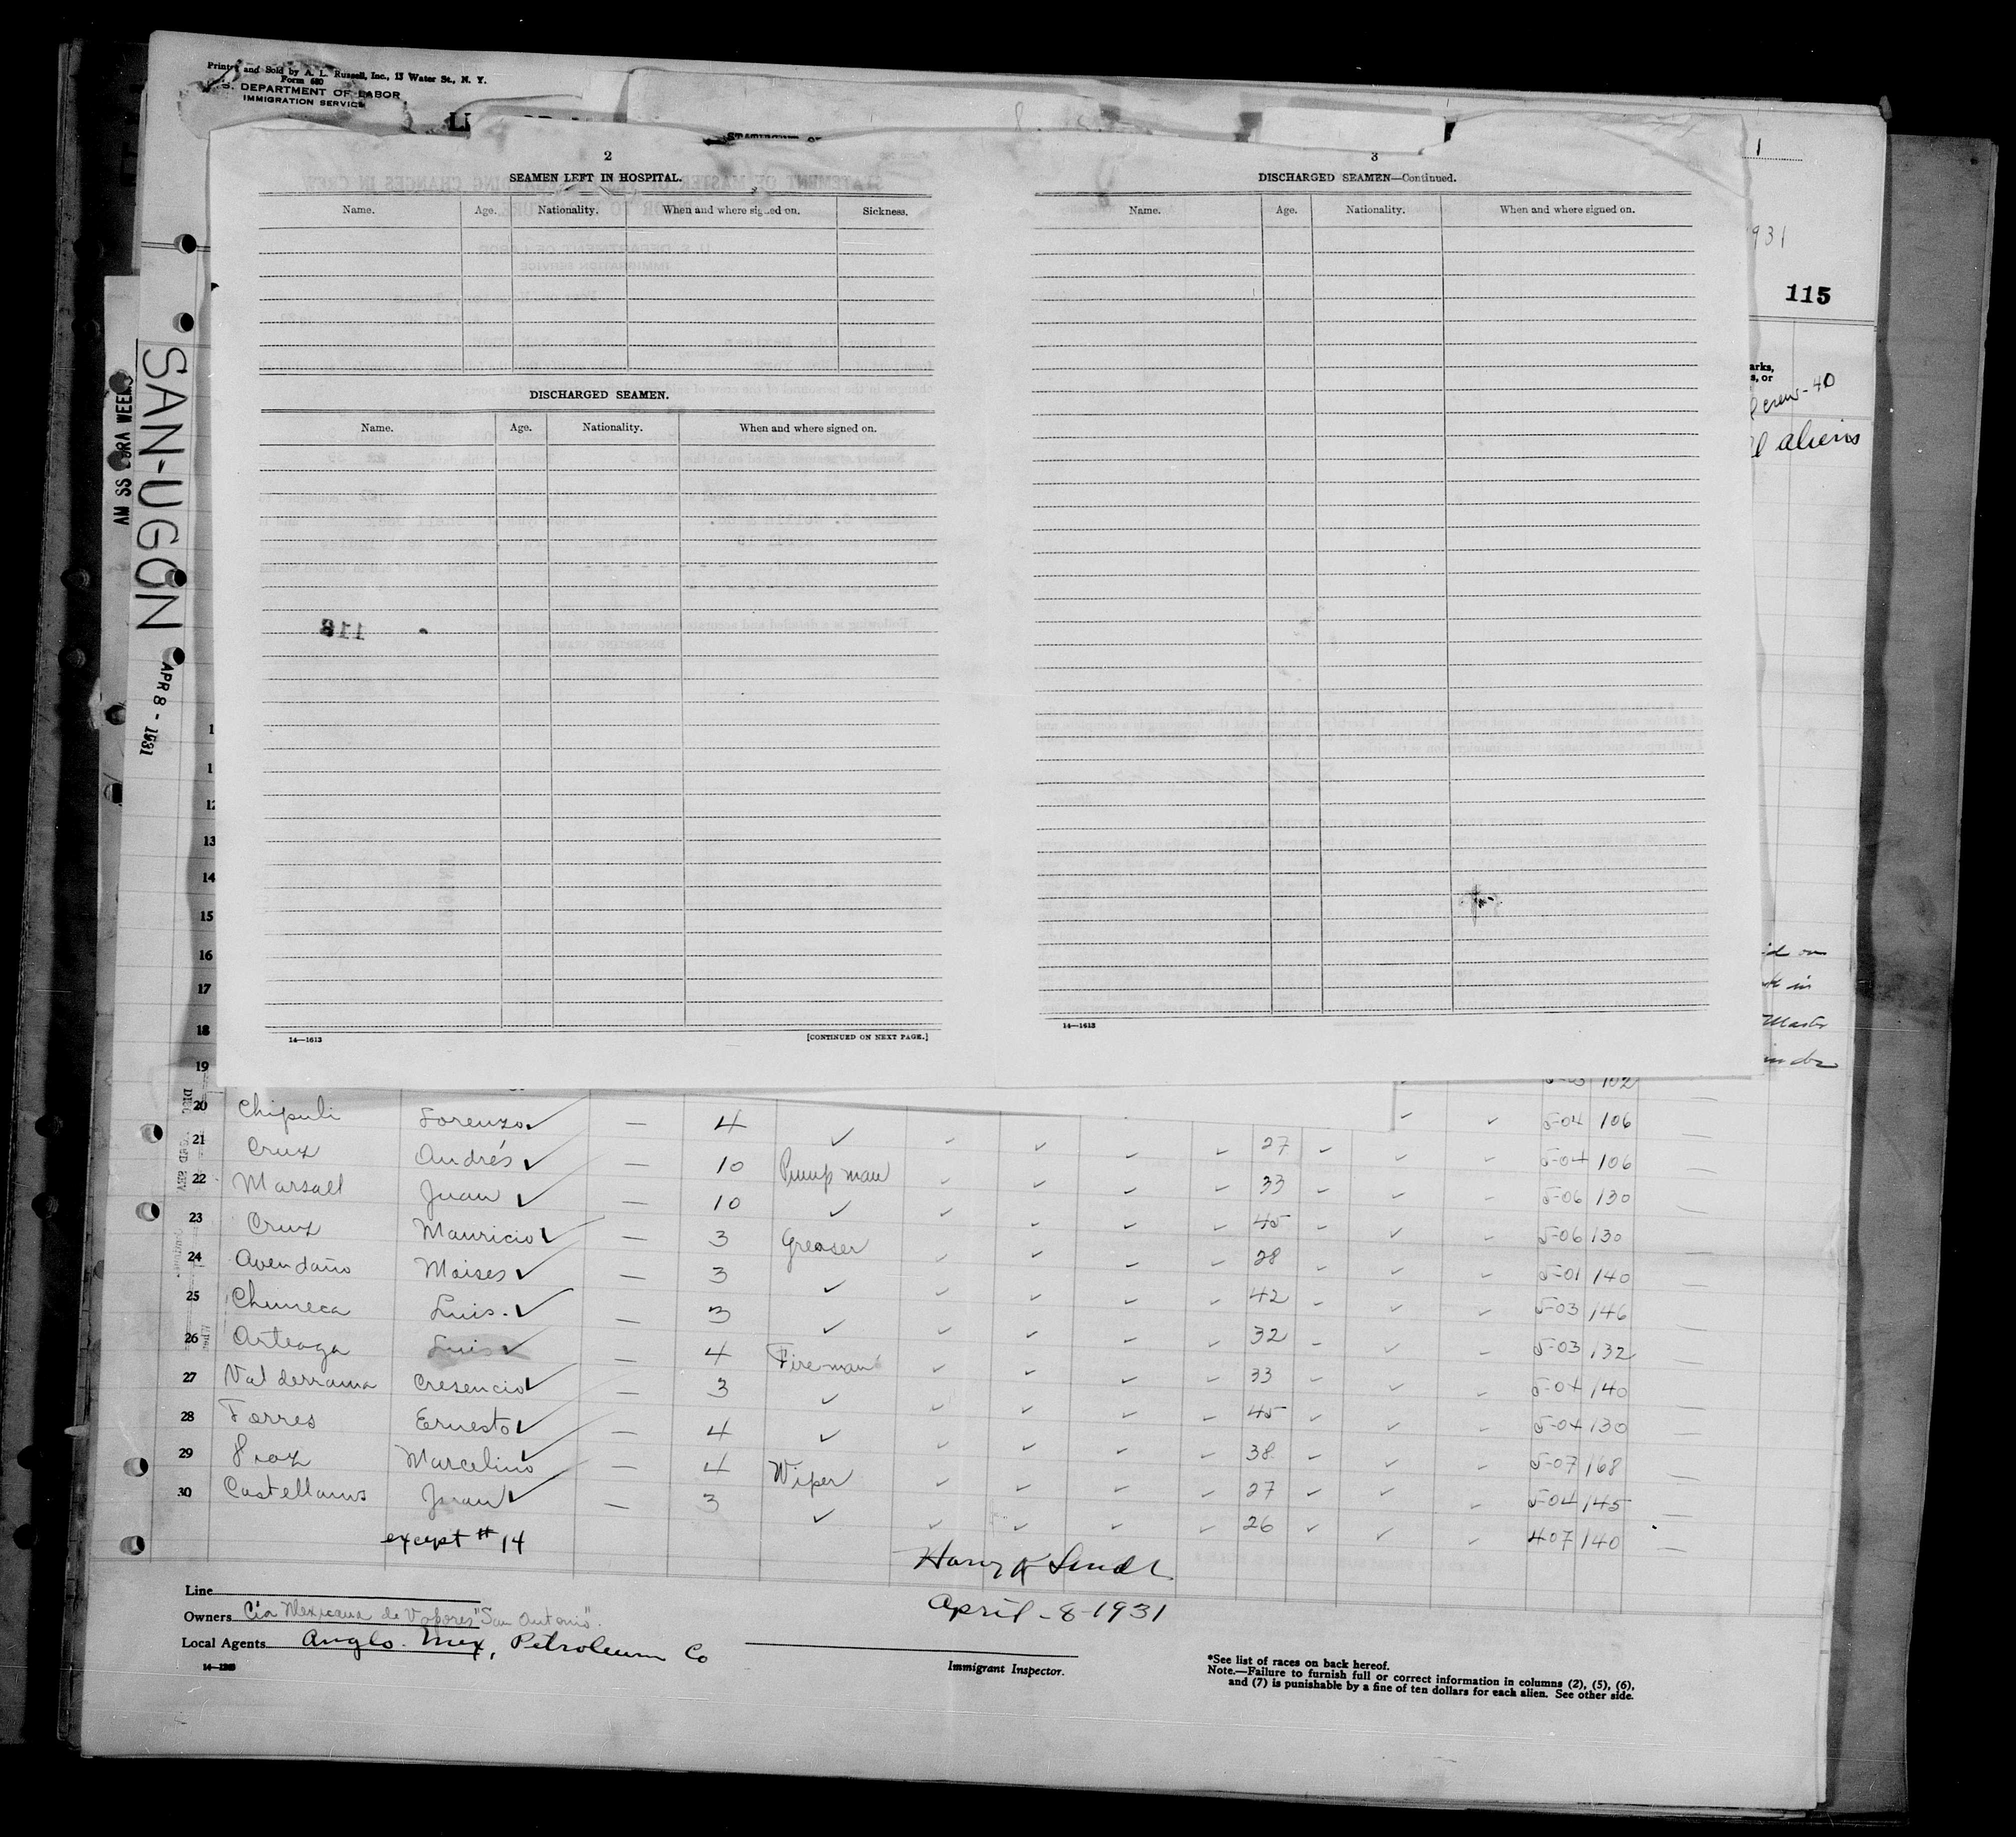 Printed and Sold by A. L. Russell, Inc., 13 Water St., N. Y.
Form 680
U. S. DEPARTMENT OF LABOR
IMMIGRATION SERVICE
1
1931
115
crew-40
aliens
SAN-UGON
APR 8 - 1931
AM SS CORA WEEMS
2
SEAMEN LEFT IN HOSPITAL.
Name. Age. Nationality. When and where signed on. Sickness.
DISCHARGED SEAMEN.
Name. Age. Nationality. When and where signed on.
118
14—1613 [CONTINUED ON NEXT PAGE.]
3
DISCHARGED SEAMEN—Continued.
Name. Age. Nationality. When and where signed on.
14—1613
12
13
14
15
16
17
18
19 102
20 Chipuli Lorenzo ✓ — 4 ✓ ✓ ✓ ✓ 27 ✓ 5-04 106
21 Cruz Andrés ✓ — 10 Pump man 33 5-04 106
22 Marsall Juan ✓ — 10 ✓ 45 5-06 130
23 Cruz Mauricio ✓ — 3 Greaser 28 5-06 130
24 Avendaño Moises ✓ — 3 ✓ 42 5-01 140
25 Chuneca Luis. ✓ — 3 ✓ 32 5-03 146
26 Arteaga Luis ✓ — 4 Fireman 33 5-03 132
27 Valderrama Cresencio ✓ — 3 ✓ 45 5-04 140
28 Torres Ernesto ✓ — 4 ✓ 38 5-04 130
29 Marcelino ✓ — 4 Wiper 27 5-07 168
30 Castellanos Juan ✓ — 3 ✓ 26 5-04 145
407 140
except # 14
Harry K
April-8-1931
Line
Owners Cia Mexicana de Vapores "San Antonio".
Local Agents Anglo. Mex, Petroleum Co
Immigrant Inspector.
*See list of races on back hereof.
Note.—Failure to furnish full or correct information in columns (2), (5), (6),
and (7) is punishable by a fine of ten dollars for each alien. See other side.